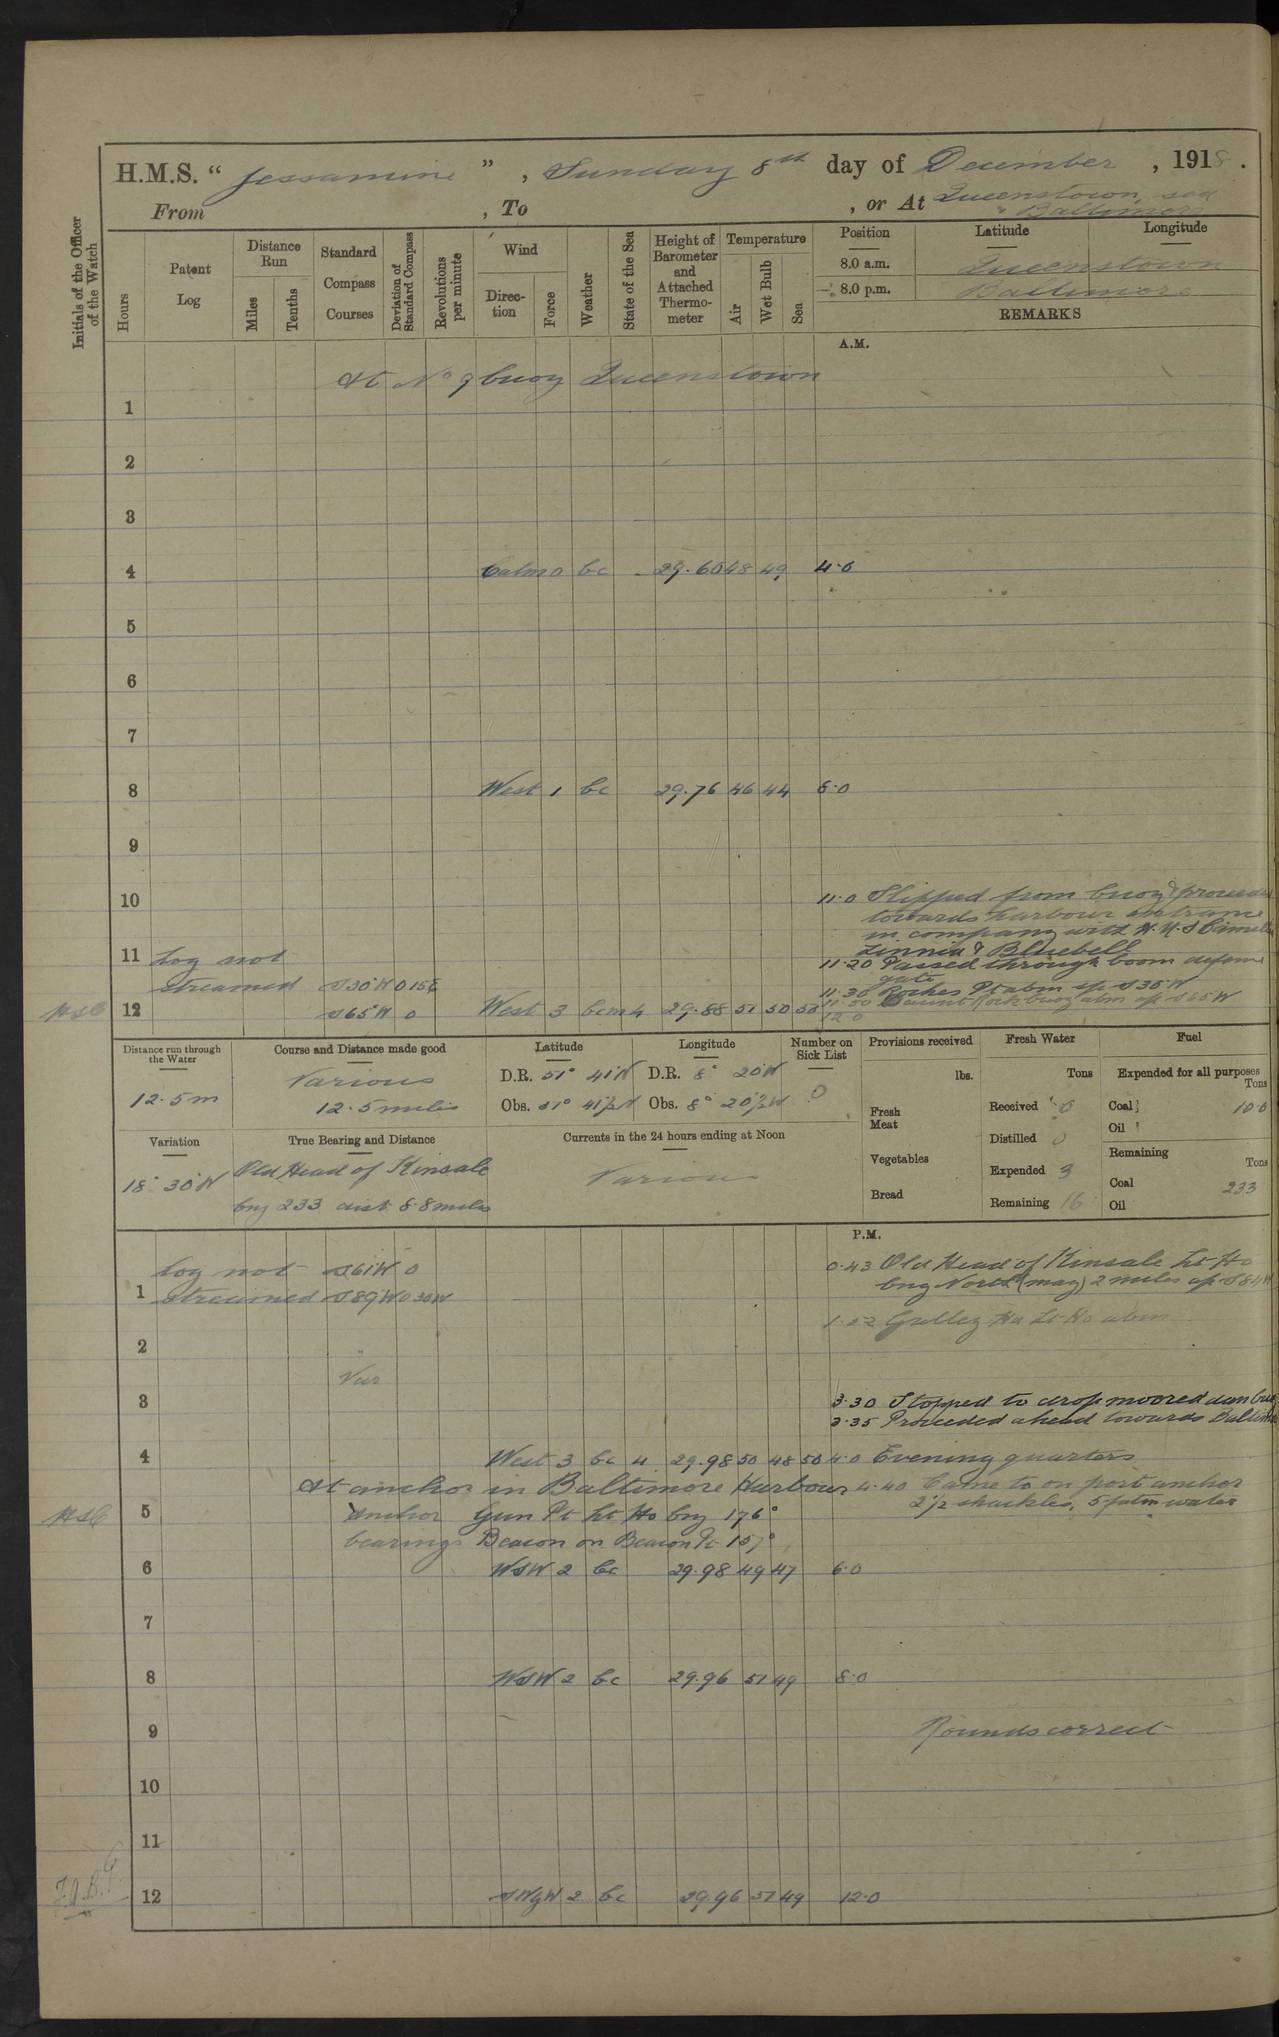 H.M.S. “ Jessamine ”, Sunday 8th day of December, 1918.
From , To , or At Queenstown, sea
& Baltimore
Initials of the Officer of the Watch
Hours
Patent Log
Distance Run
Miles
Tenths
Standard Compass Courses
Deviation of Standard Compass
Revolutions per minute
Wind
Direction
Force
Weather
State of the Sea
Height of Barometer and Attached Thermometer
Temperature
Air
Wet Bulb
Sea
Position Latitude Longitude
8.0 a.m. Queenstown
8.0 p.m. Baltimore
REMARKS
A.M.
At No 9 buoy Queenstown
1
2
3
4 Calm 0 bc - 29.60 48 49 4.0
5
6
7
8 West 1 bc 29.76 46 44 8.0
9
10 11.0 Slipped from buoy & proceeded
towards harbour entrance
in company with H.M.S
Zinnia & Bluebell
11 Log not 11.20 Passed through boom defence
gate
streamed S30°W 0 15E 11.30 Roches Pt abm S35W
11.50 Daunt Rock buoy abm S65W
12 S65°W 0 West 3 bcm 4 29.88 51 50 50 12.0
Distance run through the Water
12.5 m
Course and Distance made good
Various
12.5 miles
Latitude
D.R. 51° 41'N
Obs. 51° 41½N
Longitude
D.R. 8° 20'W
Obs. 8° 20½W
Number on Sick List
0
Provisions received
lbs.
Fresh Meat
Vegetables
Bread
Fresh Water
Tons
Received 0
Distilled 0
Expended 3
Remaining 16
Fuel
Expended for all purposes
Tons
Coal 10.0
Oil
Remaining
Tons
Coal 233
Oil
Variation
18° 30'W
True Bearing and Distance
Old Head of Kinsale
brg 233 dist 8.8 miles
Currents in the 24 hours ending at Noon
Various
P.M.
Log not S61W 0 0.43 Old Head of Kinsale Lt Ho
brg North (mag) 2 miles S84W
1 streamed S89W 0 30W
1.22 Galley Hd Lt Ho abm
2
Var
3 3.30 Stopped to drop moored dan buoy
3.35 Proceeded ahead towards Baltimore
4 West 3 bc 4 29.98 50 48 50 4.0 Evening quarters
At anchor in Baltimore Harbour 4.40 Came to on port anchor
2½ shackles, 5 fathm water
5 Anchor Gun Pt Lt Ho brg 176°
bearings Beacon on Beacon Pt 157°
6 WSW 2 bc 29.98 49 47 6.0
7
8 WSW 2 bc 29.96 51 49 8.0
9 Rounds correct
10
11
12 SWgW 2 bc 29.96 51 49 12.0